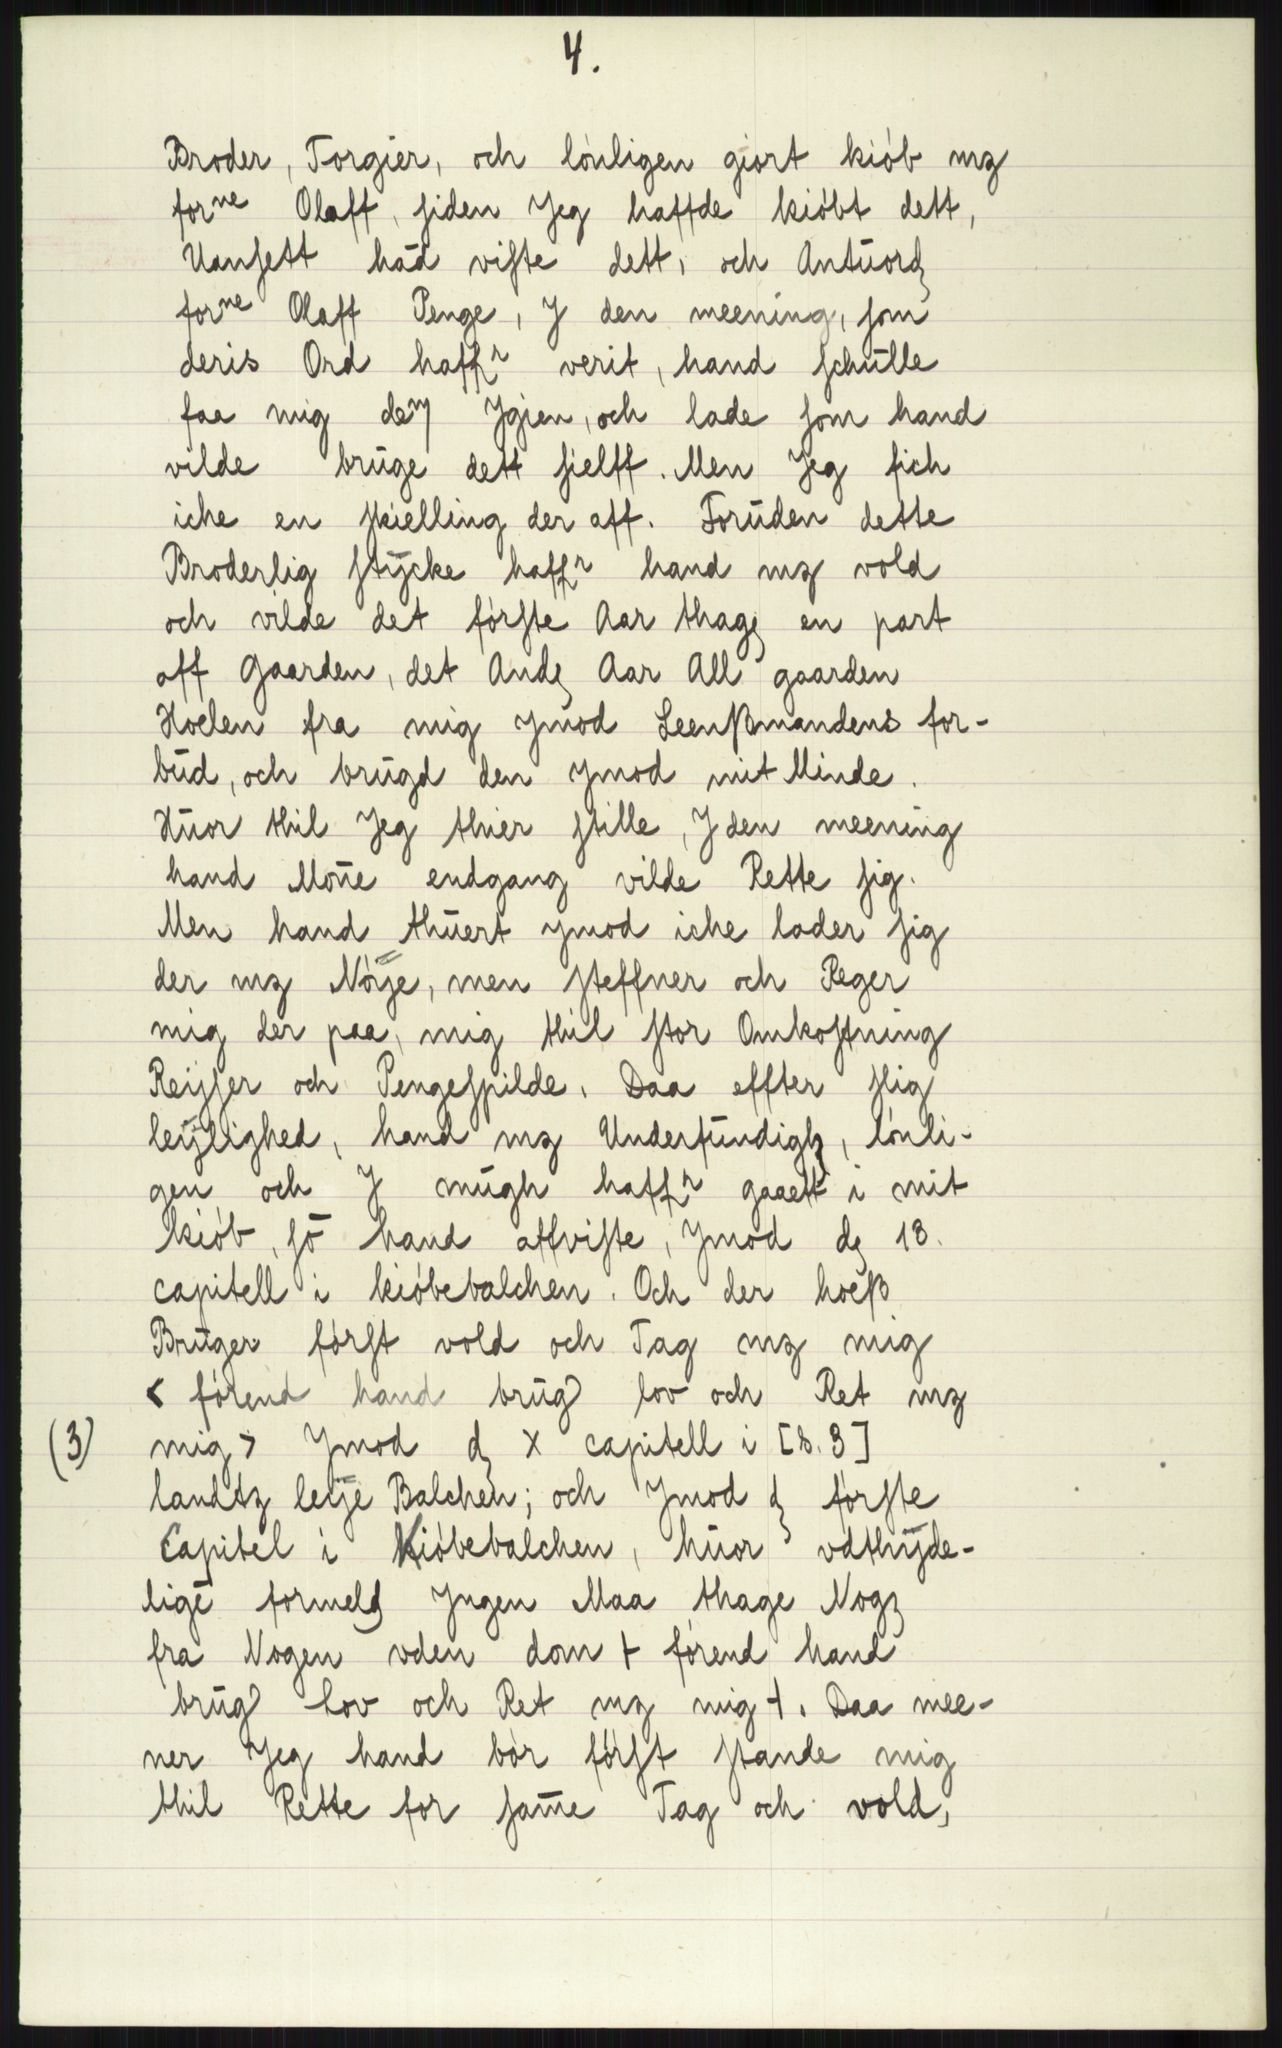 4.
Broder, Torgier, och lónligen giort kiób mz
forne Olaff, siden Jeg haffde kióbt dett,
Uansett hād viste dett, och Antūord
forne Olaff Penge, J den meening, som
deris Ord haffr verit, hand schūlle
faa mig dem Jgien, och lade som hand
vilde brūge dett sielff. Men Jeg fich
iche en skielling der aff. Forūden dette
Broderlig stÿcke haffr hand mz vold
och vilde det fórste Aar thag en part
aff Gaarden, det And Aar All gaarden
Hoelen fra mig ymod Leenßmandens for-
būd, och brūgd den ymod mit Minde.
Hūor thil Jeg thier stille, J den meening
hand Mōue endgang vilde Rette sig.
Men hand thūert ymod iche lader sig
der mz Nóÿe, men steffner och Reger
mig der paa, mig thil stor Omkostning
Reysser och Pengespilde. Daa effter slig
leÿlighed, hand mz Underfūndigh, lónli-
gen och J mūgh haffr gaaett i mit
kiób, sō hand affviste, ymod d 18.
capitell i kióbebalchen. Och der hoeß
Brūger fórst vold och Tag mz mig
< fórend hand brūg lov och Ret mz
(3) mig> ymod d X capitell i [s. 3]
landtz leÿe Balchen; och ymod d fórste
Capitel i Kióbebalchen, hūor vdthÿde-
lige formeld Jngen Maa thage Nog
fra Nogen vden dom + fórend hand
brūg lov och Ret mz mig +. Daa mee-
ner Jeg hand bór fórst stande mig
thil Rette for same Tag och vold,